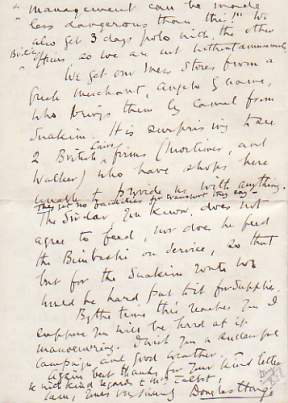 "management can be made
" less dangerous than the!!" We
also get 3 days polo with the other
British officers, so we are not without amusements
We get our Mess Stores from a
Greek merchant, Angelo by name,
who brings them by Camel from
Suakin. It is surprising to see
2 British Cairo firms (Mortimer, and
Walker) who have shops here
unable to provide us with anything.
They get no facilities for transport they say
The Sirdar, you know, does not
agree to feed, nor does he feed
the Bimbashi on Service, so that
but for the Suakin route we
would be hard put to it for supplies.
By the time this reaches you I
suppose you will be hard at it
manoeuvring. I wish you a successful
campaign and good weather.
Again best thanks for your kind letter
& with kind regards to Mrs
I am, Yours very truly Douglas Haig